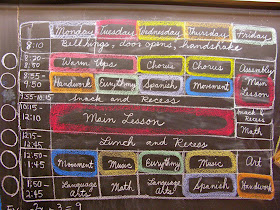 Monday Tuesday Wednesday Thursday Friday
8:10 Bell rings, door opens, handshake
8:20 Warm Ups Chorus Chorus Assembly
8:55 9:50 Handwork Eurythmy Spanish Movement Main Lesson
Snack and Recess
10:15 12:10 Main Lesson Snack + Recess
Math
12:15 12:45 Lunch and Recess
12:50 1:45 Movement Music Eurythmy Music Art
1:50 2:45 Language Arts Math Language Arts Spanish Handwork